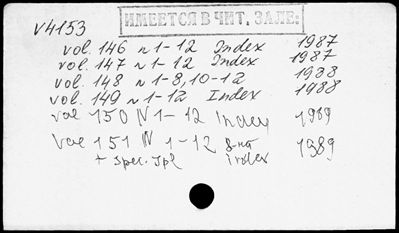 V4153
ИМЕЕТСЯ В ЧИТ. ЗАЛЕ:
vol. 146 n 1-12 Index 1987
vol. 147 n 1-12 Index 1987
vol. 148 n 1-8, 10-12 1988
vol. 149 n 1-12 Index 1988
vol 150 N 1-12 index 1989
vol 151 N 1-12 index 1989
+ spec. spl